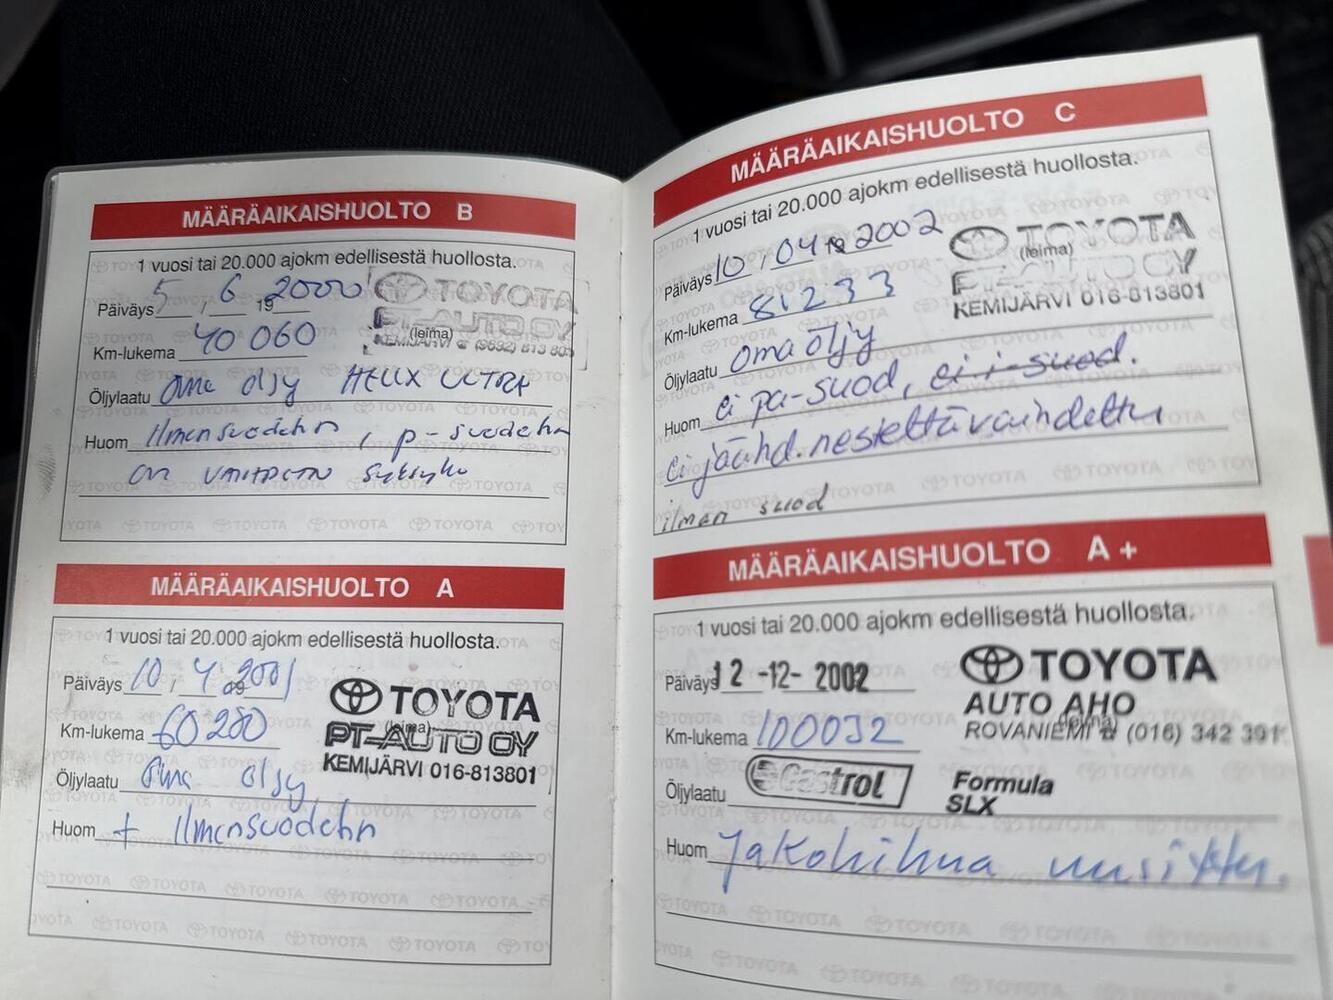 MÄÄRÄAIKAISHUOLTO B
1 vuosi tai 20.000 ajokm edellisestä huollosta.
Päiväys 5 / 6 19 2000
TOYOTA
PT-AUTO OY
(leima)
KEMIJÄRVI ☎ (9692) 813 801
Km-lukema 40 060
Öljylaatu Oma öljy HELIX ULTRA
Huom Ilmensuodehn, p-suodehn
on
MÄÄRÄAIKAISHUOLTO A
1 vuosi tai 20.000 ajokm edellisestä huollosta.
Päiväys 10 / 4 2001
TOYOTA
(leima)
PT-AUTO OY
KEMIJÄRVI 016-813801
Km-lukema 60280
Öljylaatu Oma öljy
Huom + Ilmensuodehn
MÄÄRÄAIKAISHUOLTO C
1 vuosi tai 20.000 ajokm edellisestä huollosta.
Päiväys 10 / 04 19 2002
TOYOTA
(leima)
PT-AUTO OY
KEMIJÄRVI 016-813801
Km-lukema 81233
Öljylaatu oma öljy
Huom ei pa-suod, ei i-suod.
ei jäähd.nestettä vaihdettu
ilman suod
MÄÄRÄAIKAISHUOLTO A+
1 vuosi tai 20.000 ajokm edellisestä huollosta.
Päiväys 12 -12- 2002
TOYOTA
AUTO AHO
(leima)
ROVANIEMI ☎ (016) 342 391
Km-lukema 100032
Öljylaatu Castrol Formula
SLX
Huom Jakohihna uusittu.